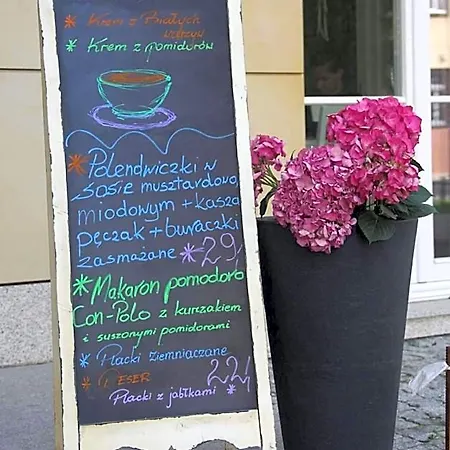 * Krem z Białych
warzyw
* Krem z pomidorów
* Polendwiczki w
sosie musztardowo
miodowym + kasza
pęczak + buraczki
zasmażane * 29,
* Makaron pomodoro
Con-Polo z kurzakiem
i suszonymi pomidorami
* Placki ziemniaczane
22,
* DESER
Placki z jabłkami *